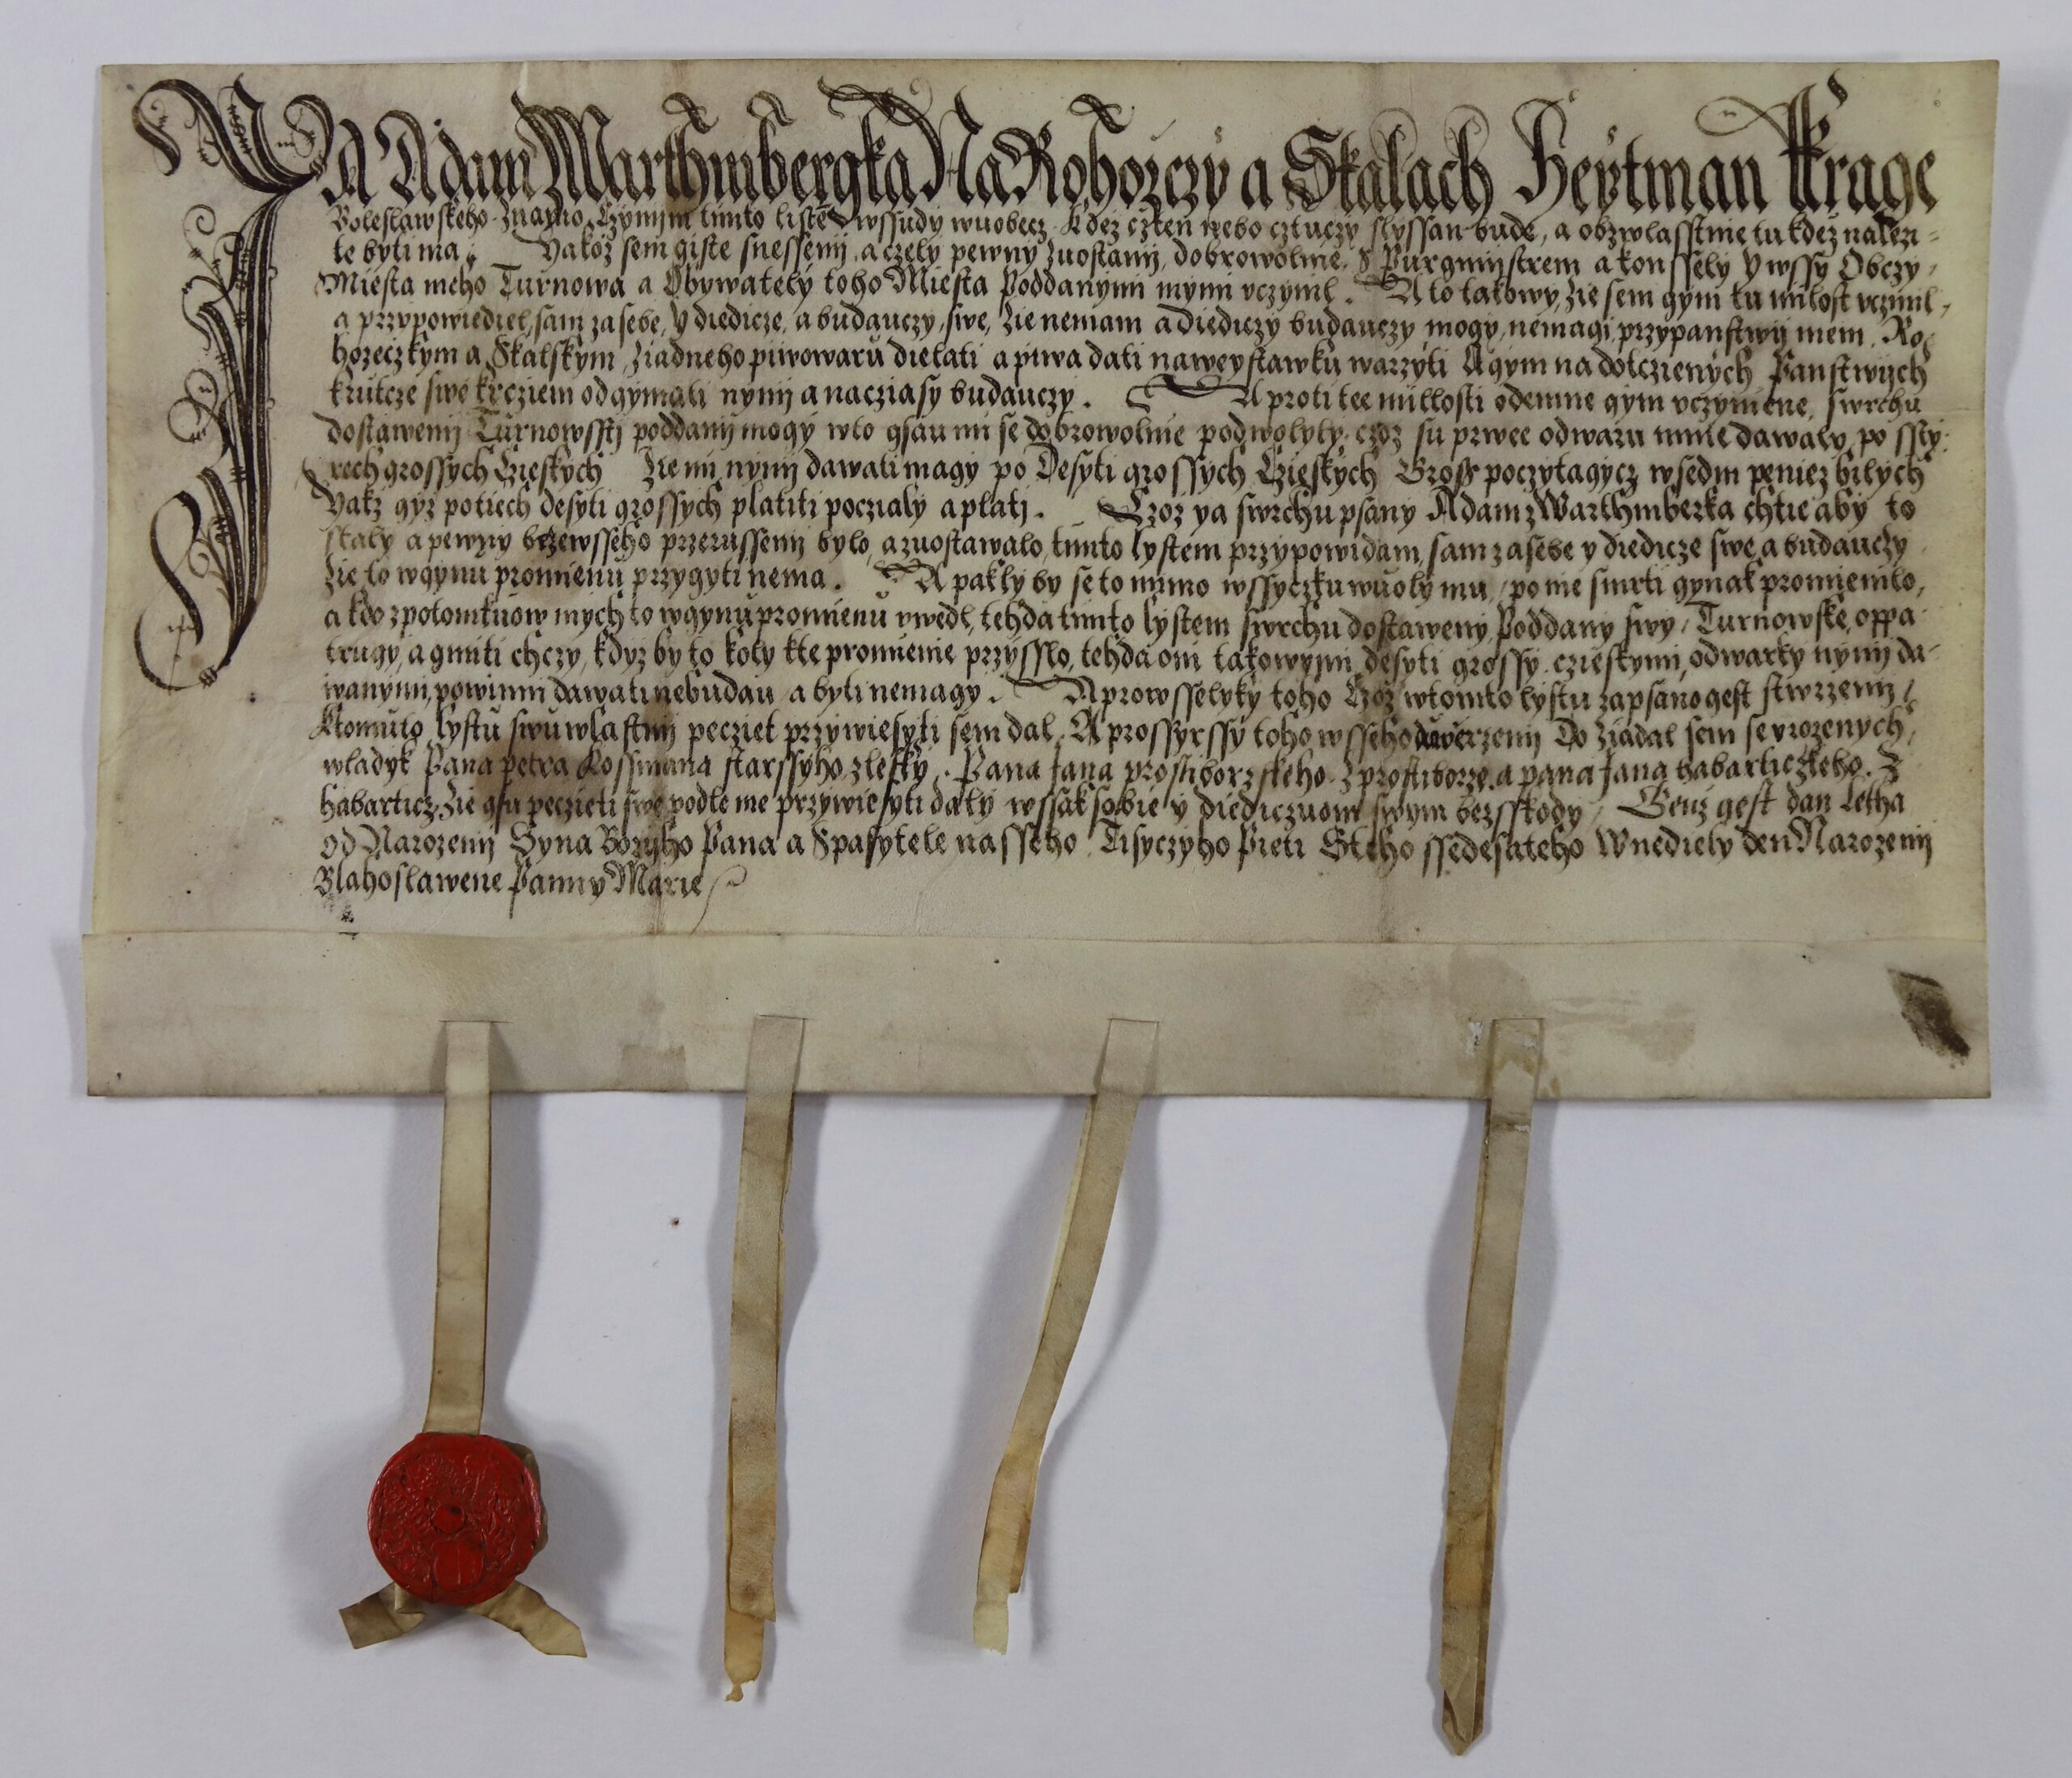 Ja Adam z Warthmbergka Na Rohozczy a Skalach Heytman Krage
Boleslawskeho. Znamo Czynym timto listem wssudy wuobecz. Kdez czten nebo cztuczy slyssan bude, a obzwlasstnie tu kdez nalezi-
te byti ma. Yakoz sem giste snessenij, a czely pewny zuostanij, dobrowolnie. S Purgmystrem a konssely y wssy Obczy
Miesta meho Turnowa a Obywately toho Miesta Poddanymi mymi vczynil. A to takowy, zie sem gym tu milost vczinil,
a przypowiediel, sam za sebe, y diedicze, a budauczy, swe, zie nemam a diediczy budauczy mogy, nemagi przypanstwij mem Ro-
hozeczkym a Skalskym ziadneho piwowaru dielati a piwa dati naweystawku warzyti A gym na dotczienych Panstwijch
krutcze swe krcziem odgymati nynij a nacziasy budauczy. A proti tee milosti odemne gym vczynene, swrchu
dostawenij Turnowsstj poddanij mogy wto gsau mi se dobrowolnie podwolyly, czoz su prwee odwaru mnie dawaly, po ssty-
rech grossych Czieskych Zie mi nynij dawati magy po Desyti grossych Czieskych Gross poczytagycz wsedm peniez bilych
Yakz gyz potiech desyti grossych platiti poczialy a plati. Czoz ya swrchu psany Adam z Warthmberka chtie aby to
staly a pewny bezewsseho przerussenij bylo, a zuostawalo, timto lystem przypowidam, sam za sebe y diedicze swe, a budauczy
zie to wgynu promienu przygyti nema. A pakly by se to mimo wssyczku wuoly mu, po me smrti gynak promienilo,
a kdo z potomkuow mych to wgynu promienu vwedl, tehda timto lystem swrchu dostaweny Poddany swy Turnowske, oppa-
trugy, a gmiti chczy, kdyz by to koly kte promienie przyssло, tehda oni takowymi desyti grossy czieskymi, odwarky nynij da-
wanymi, powinni dawati nebudau a byti nemagy. A prowsselyky toho Czoz wtomto lystu zapsano gest stwrzenij
Ktomuto lystu swu wlastnij pecziet przywiesyti sem dal. A prossyrssy toho wsseho duwerzenij Do ziadal sem se vrozenych
wladyk Pana petra Kossmana starssyho z lesky. Pana Jana prostiborzskeho z prostiborze, a pana Jana habarticzkeho. Z
habarticz, zie gsu peczieti swe podle me przywiesyti daly wssak sobie y diediczuom swym bez sskody Genz gest dan letha
od Narozenij Syna Bozyho Pana a Spasytele nasseho Tisyczyho Pieti Steho ssedesateho W nediely den Narozenij
Blahoslawene Panny Marie